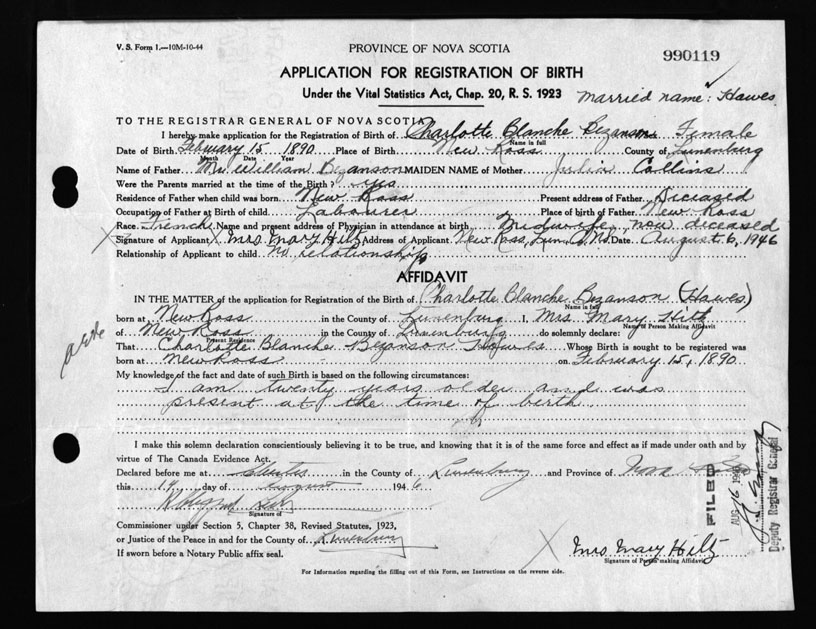 V. S. Form 1.—10M-10-44
PROVINCE OF NOVA SCOTIA
990119
APPLICATION FOR REGISTRATION OF BIRTH
Under the Vital Statistics Act, Chap. 20, R. S. 1923
Married name: Hawes
TO THE REGISTRAR GENERAL OF NOVA SCOTIA
I hereby make application for the Registration of Birth of Charlotte Blanche Bezanson Female
Name in full
Date of Birth February 15 1890 Place of Birth New Ross County of Lunenburg
Month Date Year
Name of Father Mr William Bezanson MAIDEN NAME of Mother Julia Collins
Were the Parents married at the time of the Birth? yes
Residence of Father when child was born New Ross Present address of Father Diceased
Occupation of Father at Birth of child Labourer Place of birth of Father New Ross
Race French Name and present address of Physician in attendance at birth Midwife, now diceased
Signature of Applicant X Mrs Mary Hiltz Address of Applicant New Ross, Lun. Co. N.S. Date August 6, 1946
Relationship of Applicant to child no relationship
AFFIDAVIT
IN THE MATTER of the application for Registration of the Birth of Charlotte Blanche Bezanson (Hawes)
Name in full
born at New Ross in the County of Lunenburg I, Mrs. Mary Hiltz
Name of Person Making Affidavit
of New Ross in the County of Lunenburg do solemnly declare:
Present Residence
That Charlotte Blanche Bezanson Hawes Whose Birth is sought to be registered was
born at New Ross on February 15, 1890.
My knowledge of the fact and date of such Birth is based on the following circumstances:
I am twenty years older and was
present at the time of birth
I make this solemn declaration conscientiously believing it to be true, and knowing that it is of the same force and effect as if made under oath and by
virtue of The Canada Evidence Act.
Declared before me at in the County of Lunenburg and Province of Nova Scotia
this 14 day of August 1946
Signature of
Commissioner under Section 5, Chapter 38, Revised Statutes, 1923,
or Justice of the Peace in and for the County of Lunenburg
If sworn before a Notary Public affix seal.
X Mrs Mary Hiltz
Signature of Person making Affidavit
For Information regarding the filling out of this Form, see Instructions on the reverse side.
FILED
AUG 16 1946
Deputy Registrar General